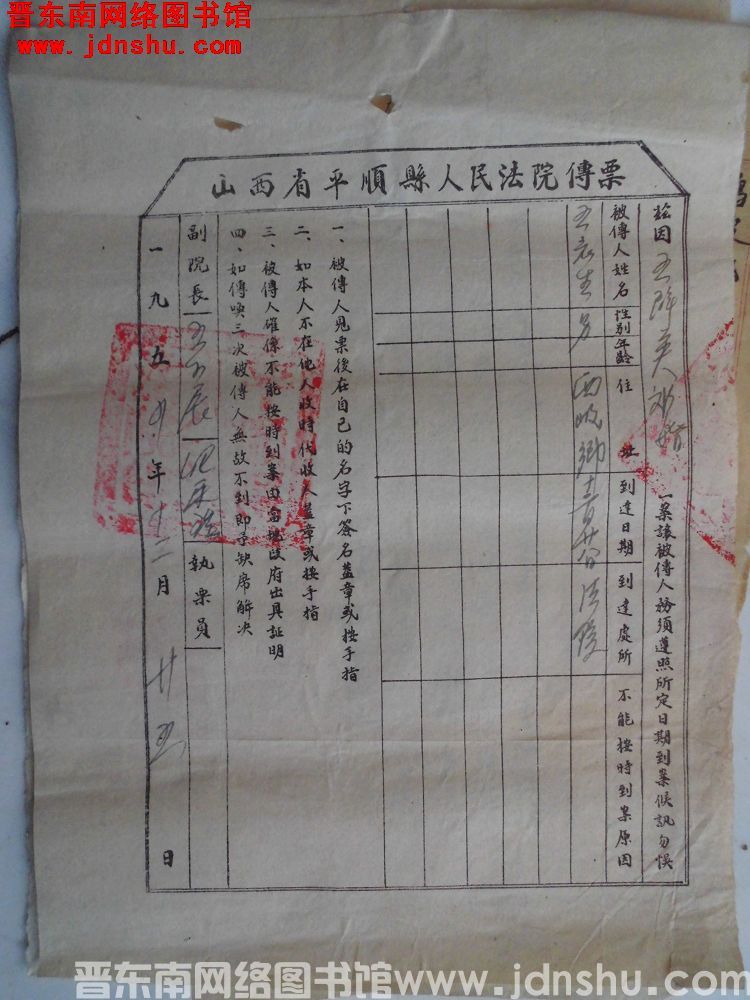 晋东南网络图书馆
www.jdnshu.com
山西省平順縣人民法院傳票
茲因 离婚 一案該被傳人務須遵照所定日期到案候訊勿悮
被傳人姓名 性别 年齡 住址 到達日期 到達處所 不能按時到案原因
生 男 鄉 法院
一、被傳人見票後在自己的名字下簽名盖章或按手指
二、如本人不在他人收時代收人盖章或按手指
三、被傳人確係不能按時到案由當地政府出具証明
四、如傳喚三次被傳人無故不到即予缺席解决
副院長 執票員
一九五 年十二月廿五日
晋东南网络图书馆www.jdnshu.com